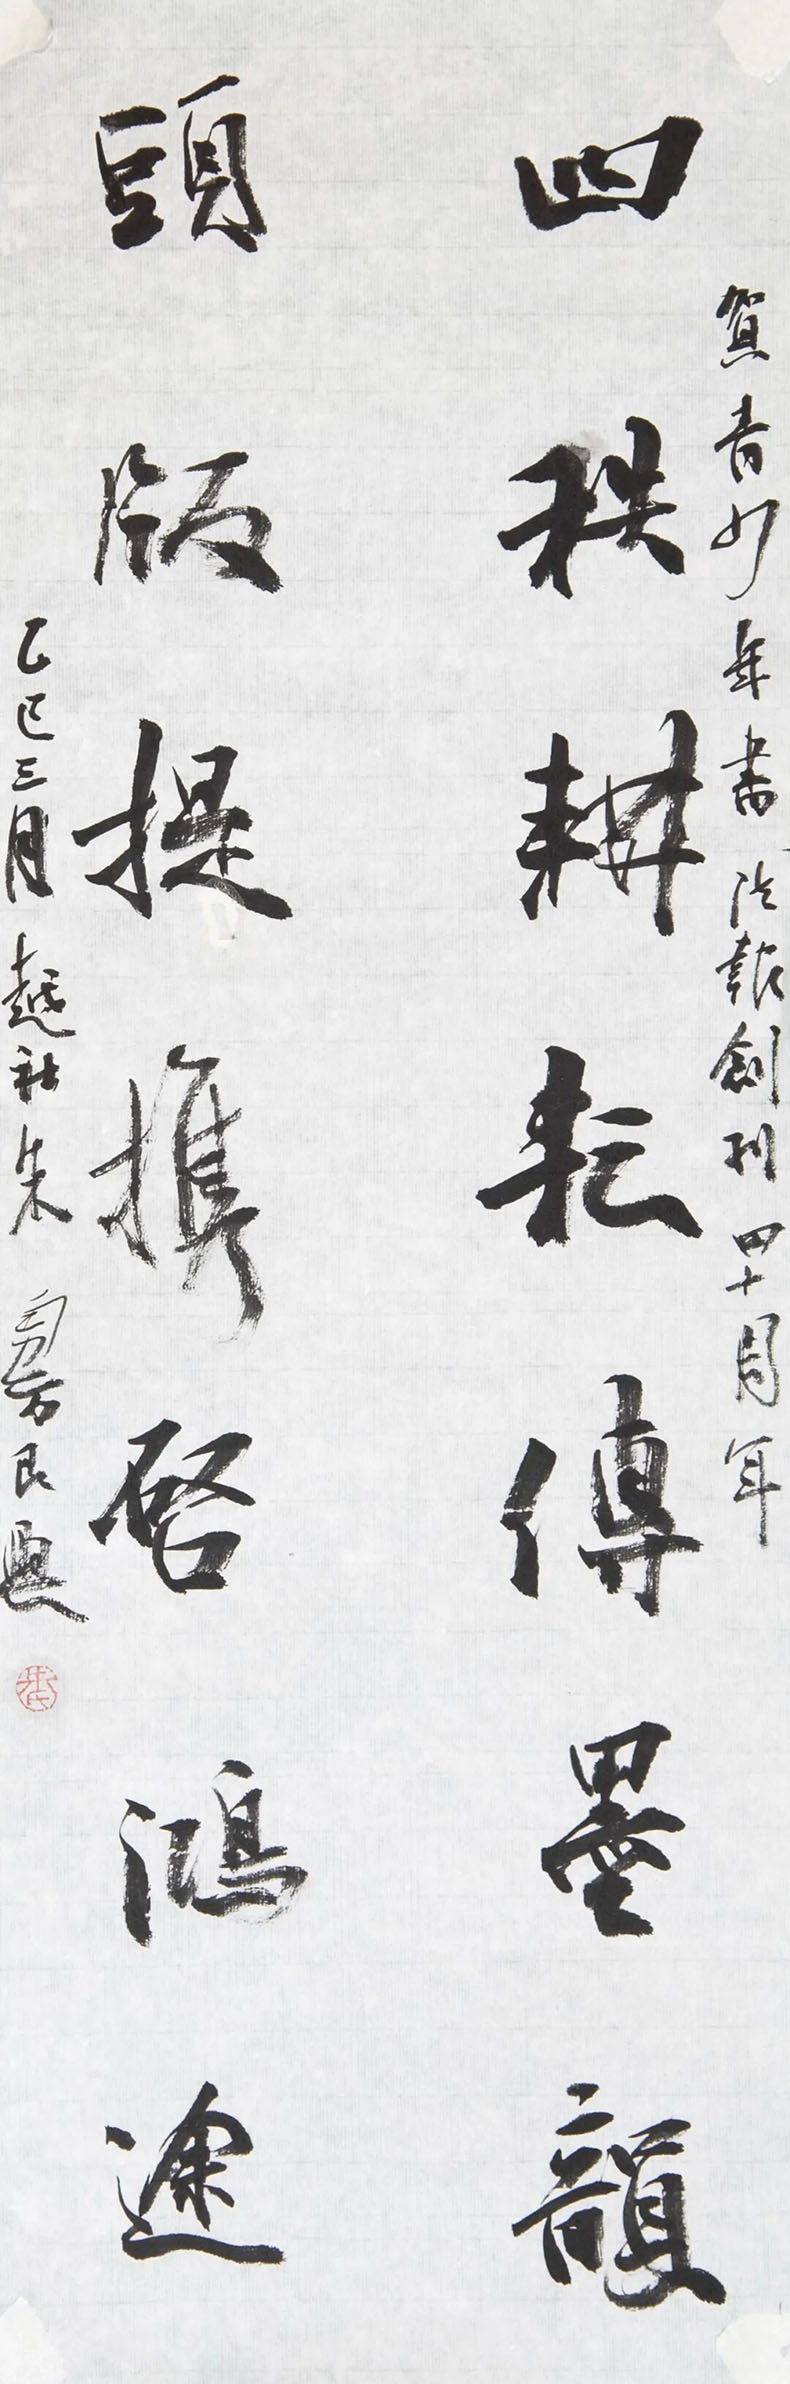 賀青少年書法報創刊四十周年
四秩耕耘傳墨韻
頭版提攜啓鴻途
乙巳三月越社朱勇良題